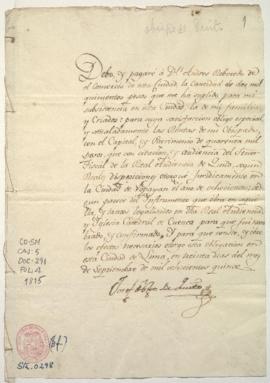 obispo de Quito
1
Debo, y pagaré á Dn. Andres Reboredo de
el Comercio de esta Ciudad, la Cantidad de dos mil
quinientos pesos que me há suplido para mi
subsistencia en esta Ciudad, la de mi familia,
y Criados: para cuya satisfaccion obligo especial
y señaladamente las Rentas de mi Obispado,
con el Capital, y Patrimonio de quarenta mil
pesos que con citacion, y audiencia del Señor
Fiscal de la Real Audiencia de Quito, segun
Reales disposiciones otorgué Juridicamente en
la Ciudad de Popayan el año de ochocientos
que parece del Instrumento que obra en aque
lla, y sacas legalizadas en dha Real Audiencia,
y Iglesia Catedral de Cuenca para que fui nom
brado, y confirmado. Y para que conste, y obre
los efectos necesarios otorgo esta obligacion en
esta Ciudad de Lima, en veinte dias del mes
de Septiembre de mil ochocientos quince
CO-SM
CAJ: 5
DOC: 291
FOL: 1
1815
(3f.)
Sta. 0298